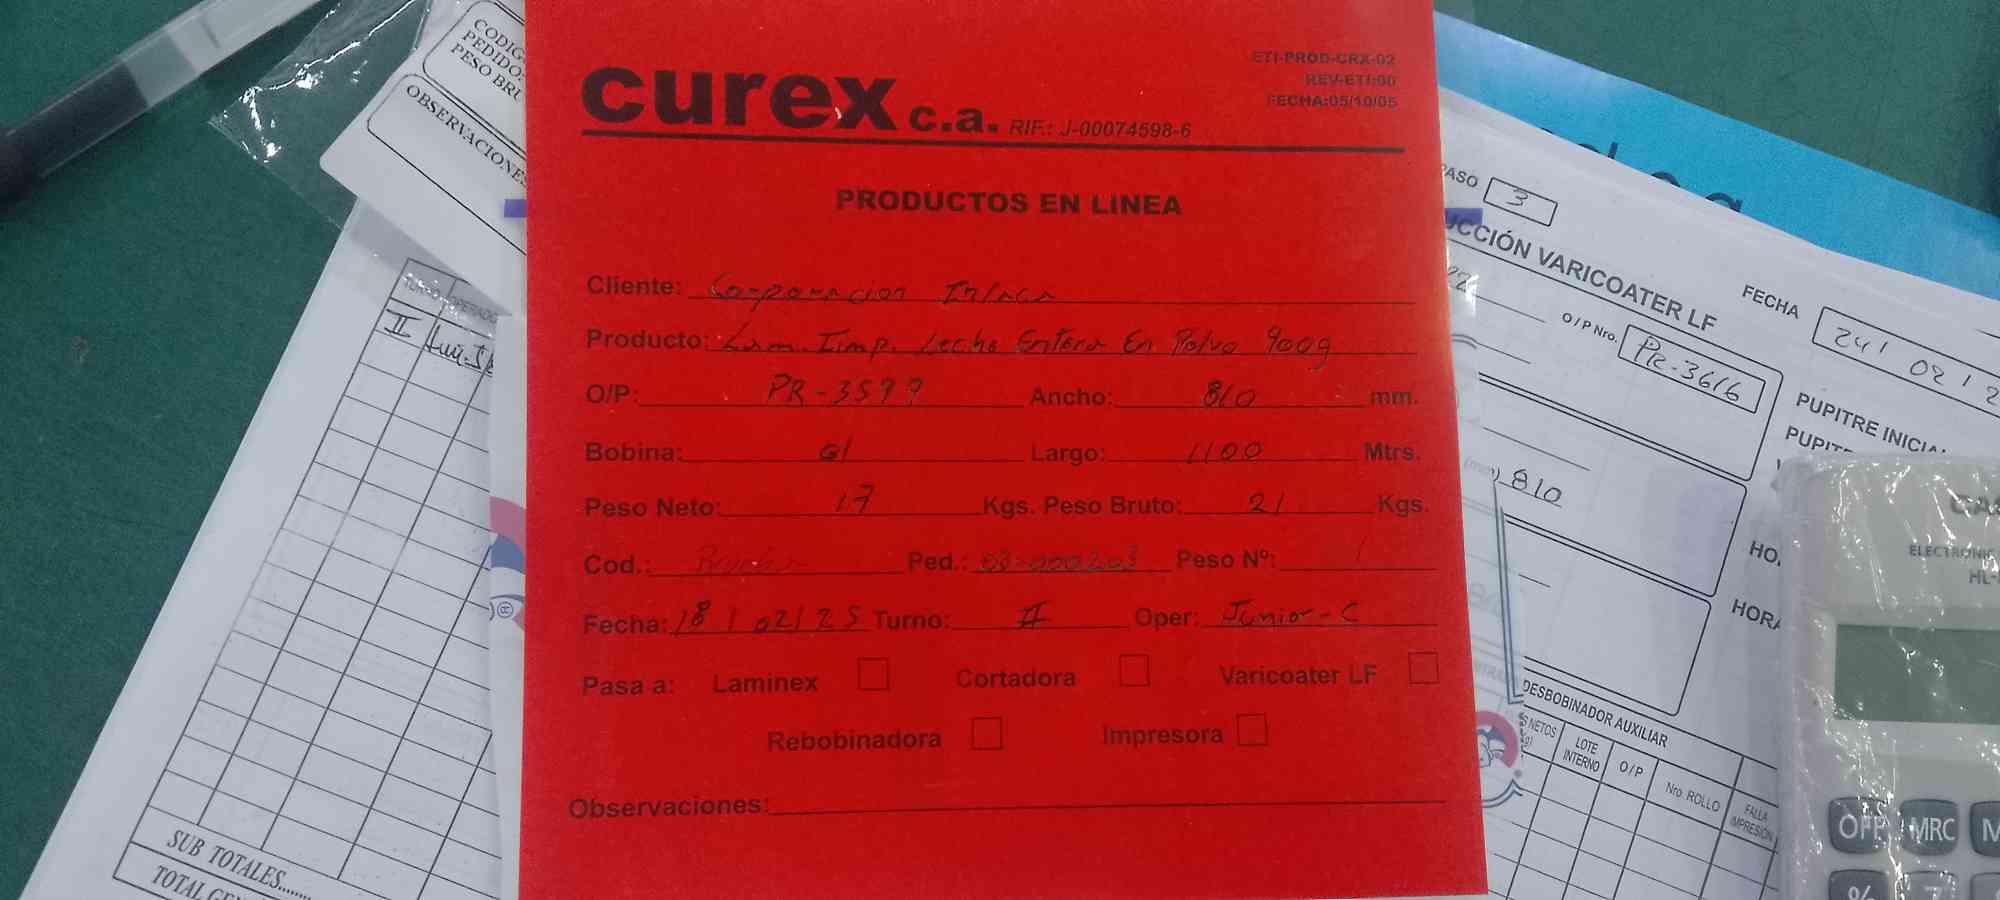 CODIG
PEDIDO:
PESO BRU
OBSERVACIONES
TURNO OPERADO
II
SUB TOTALES.......
TOTAL GE
ETI-PROD-CRX-02
REV-ETI:00
FECHA:05/10/05
curex c.a. RIF.: J-00074598-6
PRODUCTOS EN LINEA
Cliente: Corporacion Inlaca
Producto: Lam. Imp. Leche Entera En Polvo 900g
O/P: PR-3599 Ancho: 810 mm.
Bobina: G1 Largo: 1100 Mtrs.
Peso Neto: 17 Kgs. Peso Bruto: 21 Kgs.
Cod.: Prueba Ped.: 03-000203 Peso Nº: 1
Fecha: 18/02/25 Turno: II Oper: Junior-C
Pasa a: Laminex Cortadora Varicoater LF
Rebobinadora Impresora
Observaciones:
PASO 3
UCCIÓN VARICOATER LF
FECHA 24/02/2
O/P Nro. PR-3616
PUPITRE INICIAL
PUPIT
(mm) 810
HO
HORA
DESBOBINADOR AUXILIAR
S NETOS
LOTE INTERNO
O/P
Nro. ROLLO
FALLA IMPRESIÓN
CAS
ELECTRONIC
HL-
OFF MRC M
% 7